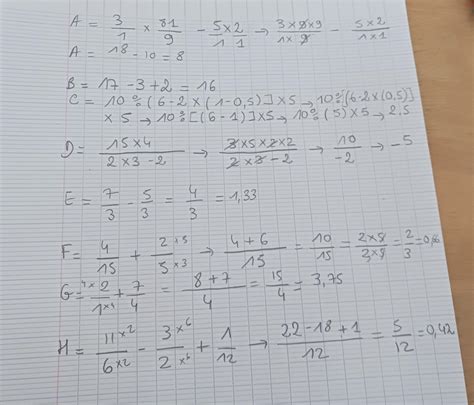 A = 3/1 × 81/9 - 5×2/1 1 → 3×9×9/1×9 - 5×2/1×1
A = 18 - 10 = 8
B = 17 - 3 + 2 = 16
C = 10 % (6-2 × (1-0,5)] × 5 → 10 % [6-2 × (0,5)]
× 5 → 10 % [(6-1)] × 5 → 10 % (5) × 5 → 2,5
D = 15×4/2×3-2 → 3×5×2×2/2×3-2 → 10/-2 → -5
E = 7/3 - 5/3 = 4/3 = 1,33
F = 4/15 + 2 ×3/5 ×3 → 4+6/15 = 10/15 = 2×5/3×5 = 2/3 = 0,66
G = 4× 2/1 ×4 + 7/4 = 8+7/4 = 15/4 = 3,75
H = 11 ×2/6 ×2 - 3 ×6/2 ×6 + 1/12 → 22-18+1/12 = 5/12 = 0,42